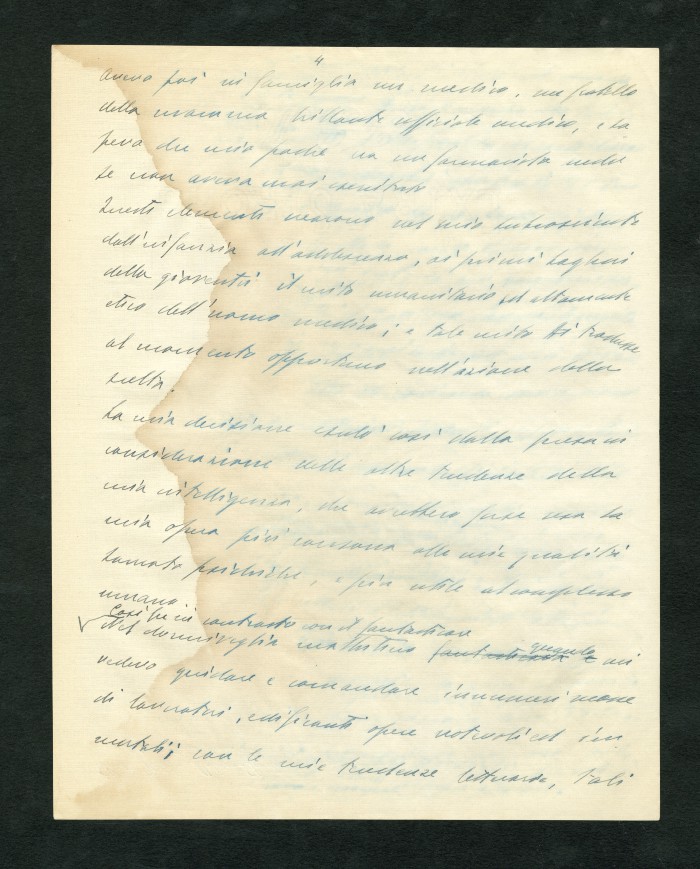 4
Avevo poi in famiglia un medico, un fratello
della mamma brillante ufficiale medico, e sa
pevo che mio padre era un farmacista anche
se non aveva mai esercitato
Questi elementi crearono nel mio subcosciente
dall'infanzia all'adolescenza, ai primi bagliori
della gioventù il mito umanitario ed altamente
etico dell'uomo medico; e tale mito si tradusse
al momento opportuno nell'azione della
scelta.
La mia decisione esulò così dalla presa in
considerazione delle altre tendenze della
mia intelligenza, che avrebbero forse resa la
mia opera più consona alle mie qualità
psichiche, e più utile al complesso
umano
Così in contrasto con il fantasticare
Nel dormiveglia mattutino quando mi
vedevo guidare e comandare innumeri masse
di lavoratori, edificanti opere notevoli ed im
mortali; con le mie tendenze letterarie, tali